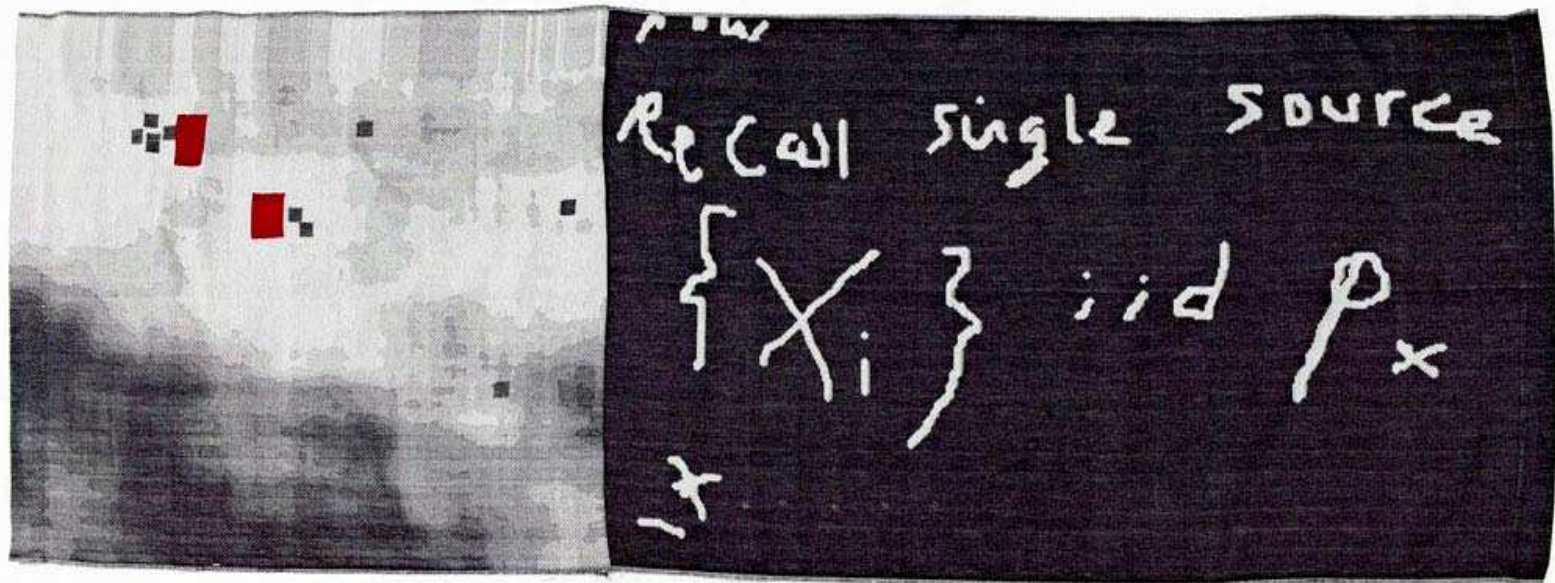 Recall single source
{X_i} iid P_x